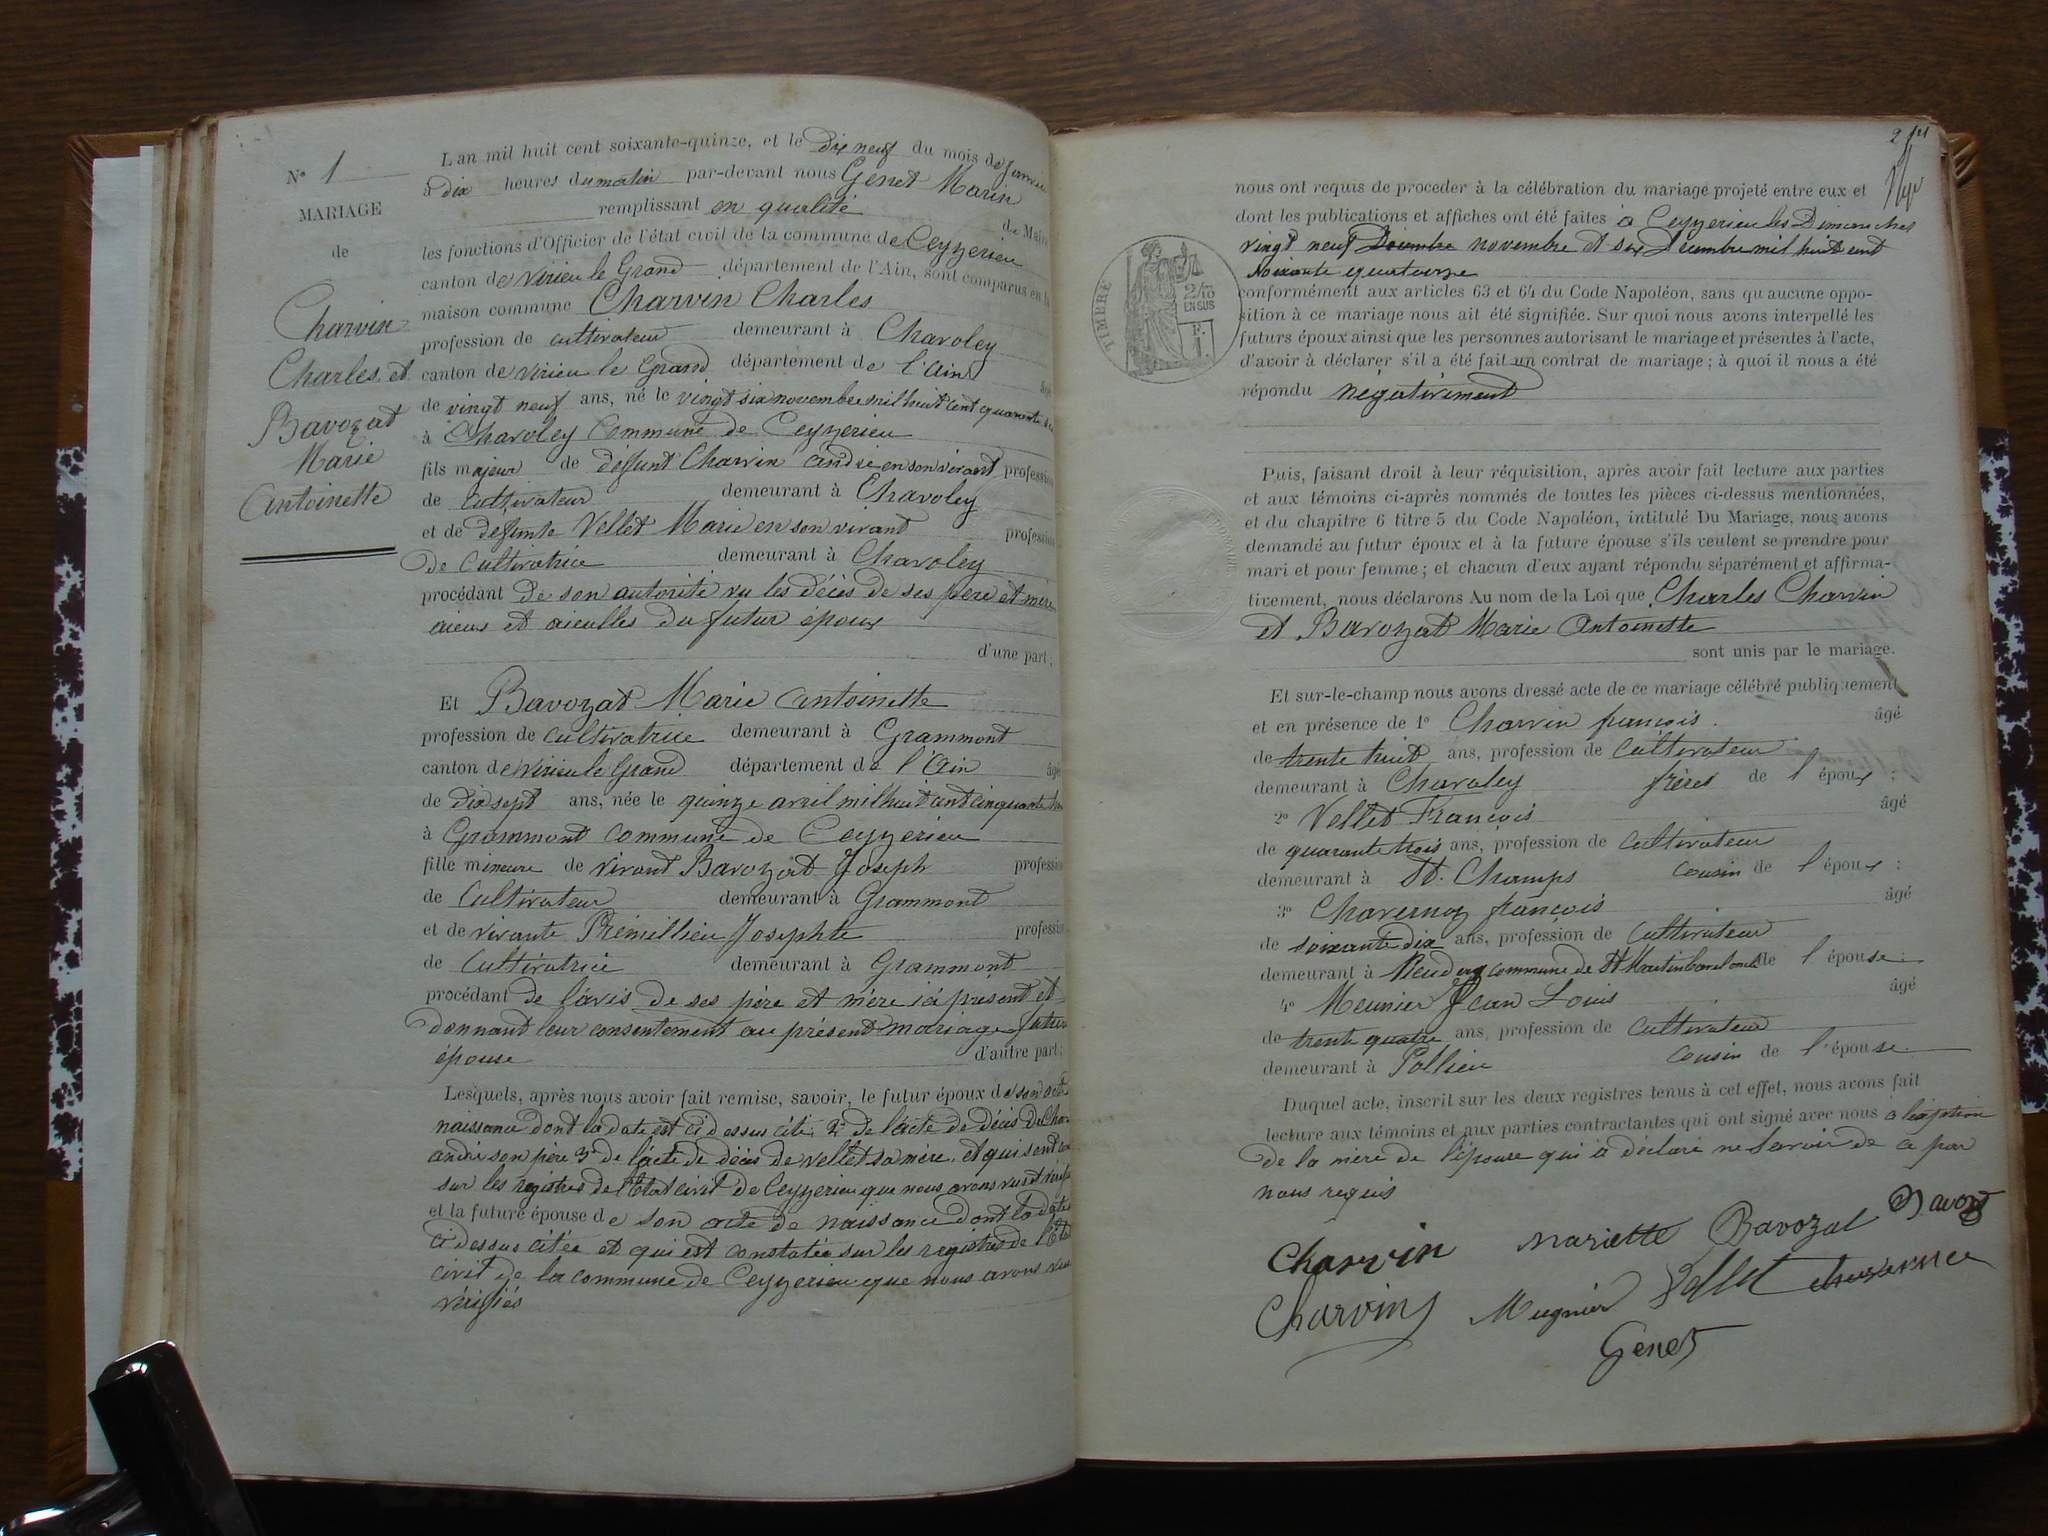 N° 1
MARIAGE
de
Charvin
Charles et
Bavozat
Marie
Antoinette
L'an mil huit cent soixante-quinze, et le dix neuf du mois de janvier
à dix heures du matin par-devant nous Genet Marin
remplissant en qualité de Maire
les fonctions d'Officier de l'état civil de la commune de Ceyzerieu
canton de Virieu le Grand département de l'Ain, sont comparus en la
maison commune Charvin Charles
profession de cultivateur demeurant à Chavoley
canton de Virieu le Grand département de l'Ain âgé
de vingt neuf ans, né le vingt six novembre mil huit cent quarante
à Chavoley Commune de Ceyzerieu
fils majeur de deffunt Charvin andré en son vivant profession
de cultivateur demeurant à Chavoley
et de defunte Vellet Marie en son vivant profession
de Cultivatrice demeurant à Chavoley
procédant de son autorité vu les décès de ses père et mère
aieus et aieulles du futur époux
d'une part;
Et Bavozat Marie antoinette
profession de cultivatrice demeurant à Grammont
canton de Virieu le Grand département de l'Ain âgé
de dix sept ans, née le quinze avril mil huit cent cinquante
à Grammont commune de Ceyzerieu
fille mineure de vivant Bavozat Joseph profession
de Cultivateur demeurant à Grammont
et de vivante Prémillieu Josephte profession
de Cultivatrice demeurant à Grammont
procédant de l'avis de ses père et mère ici présent et
donnant leur consentement au présent mariage future
épouse d'autre part;
Lesquels, après nous avoir fait remise, savoir, le futur époux de son acte
naissance dont la date est ci dessus cité 2° de l'acte de décès de
andré son père 3° de l'acte de décès de Vellet sa mère, et qui sont
sur les registres de l'Etat civil de Ceyzerieu que nous avons vus et
et la future épouse de son acte de naissance dont la date
ci dessus citée et qui est constatée sur les registres de l'Etat
civil de la commune de Ceyzerieu que nous avons vus
vérifiés
nous ont requis de proceder à la célébration du mariage projeté entre eux et
dont les publications et affiches ont été faites à Ceyzerieu les Dimanches
vingt neuf Décembre novembre et six Décembre mil huit cent
soixante quatorze
TIMBRE
2/10
EN SUS
conformément aux articles 63 et 64 du Code Napoléon, sans qu'aucune oppo-
sition à ce mariage nous ait été signifiée. Sur quoi nous avons interpellé les
futurs époux ainsi que les personnes autorisant le mariage et présentes à l'acte,
d'avoir à déclarer s'il a été fait un contrat de mariage; à quoi il nous a été
répondu négativement
Puis, faisant droit à leur réquisition, après avoir fait lecture aux parties
et aux témoins ci-après nommés de toutes les pièces ci-dessus mentionnées,
et du chapitre 6 titre 5 du Code Napoléon, intitulé Du Mariage, nous avons
demandé au futur époux et à la future épouse s'ils veulent se prendre pour
mari et pour femme; et chacun d'eux ayant répondu séparément et affirma-
tivement, nous déclarons Au nom de la Loi que Charles Charvin
et Bavozat Marie Antoinette
sont unis par le mariage.
Et sur-le-champ nous avons dressé acte de ce mariage célébré publiquement
et en présence de 1° Charvin françois. âgé
de trente huit ans, profession de Cultivateur
demeurant à Chavoley frères de l'époux;
2° Vellet François âgé
de quarante trois ans, profession de cultivateur
demeurant à St. Champs cousin de l'époux;
3° Chavernoz françois âgé
de soixante dix ans, profession de Cultivateur
demeurant à commune de St Martin de l'épouse
4° Meunier Jean Louis âgé
de trente quatre ans, profession de cultivateur
demeurant à Pollieu cousin de l'épouse
Duquel acte, inscrit sur les deux registres tenus à cet effet, nous avons fait
lecture aux témoins et aux parties contractantes qui ont signé avec nous à
de la mère de l'épouse qui a déclaré ne savoir de ce par
nous requis
Charvin Mariette Bavozat Bavozat
Charvin Mugnier Vellet
Genet